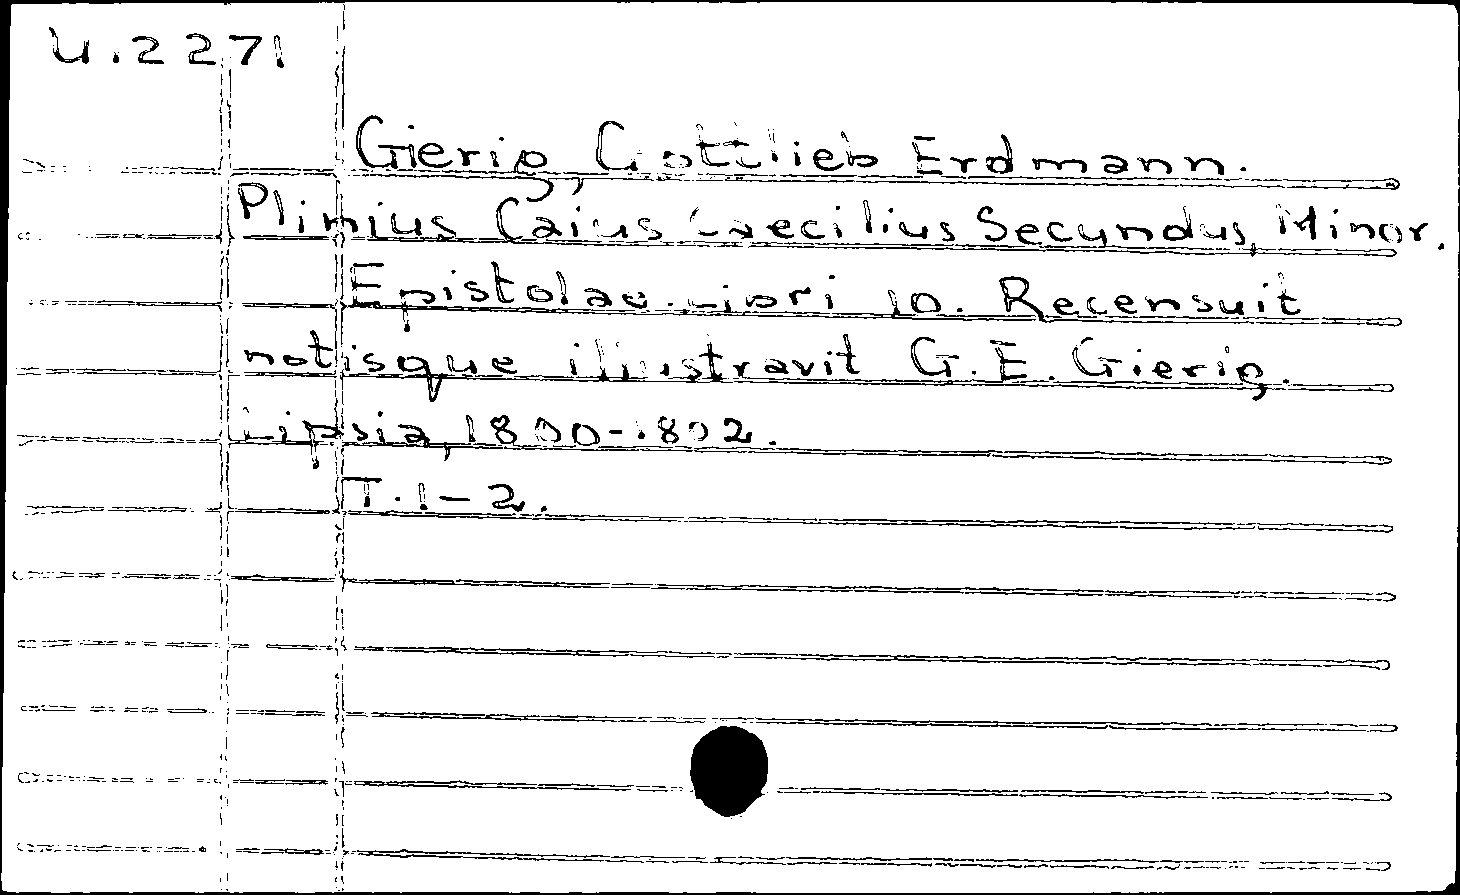 U.2271
Gierig, Gottlieb Erdmann.
Plinius Caius Caecilius Secundus, Minor.
Epistolae. Libri 10. Recensuit
notisque illustravit G. E. Gierig.
Lipsia, 1800-1802.
T. 1-2.